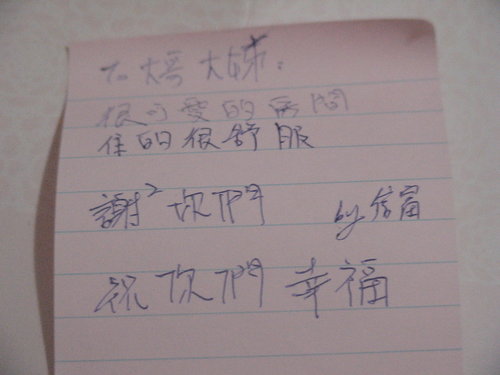 To 大哥 大姊:
很可愛的房間
住的很舒服
謝² 你們 by 信富
祝你們 幸福